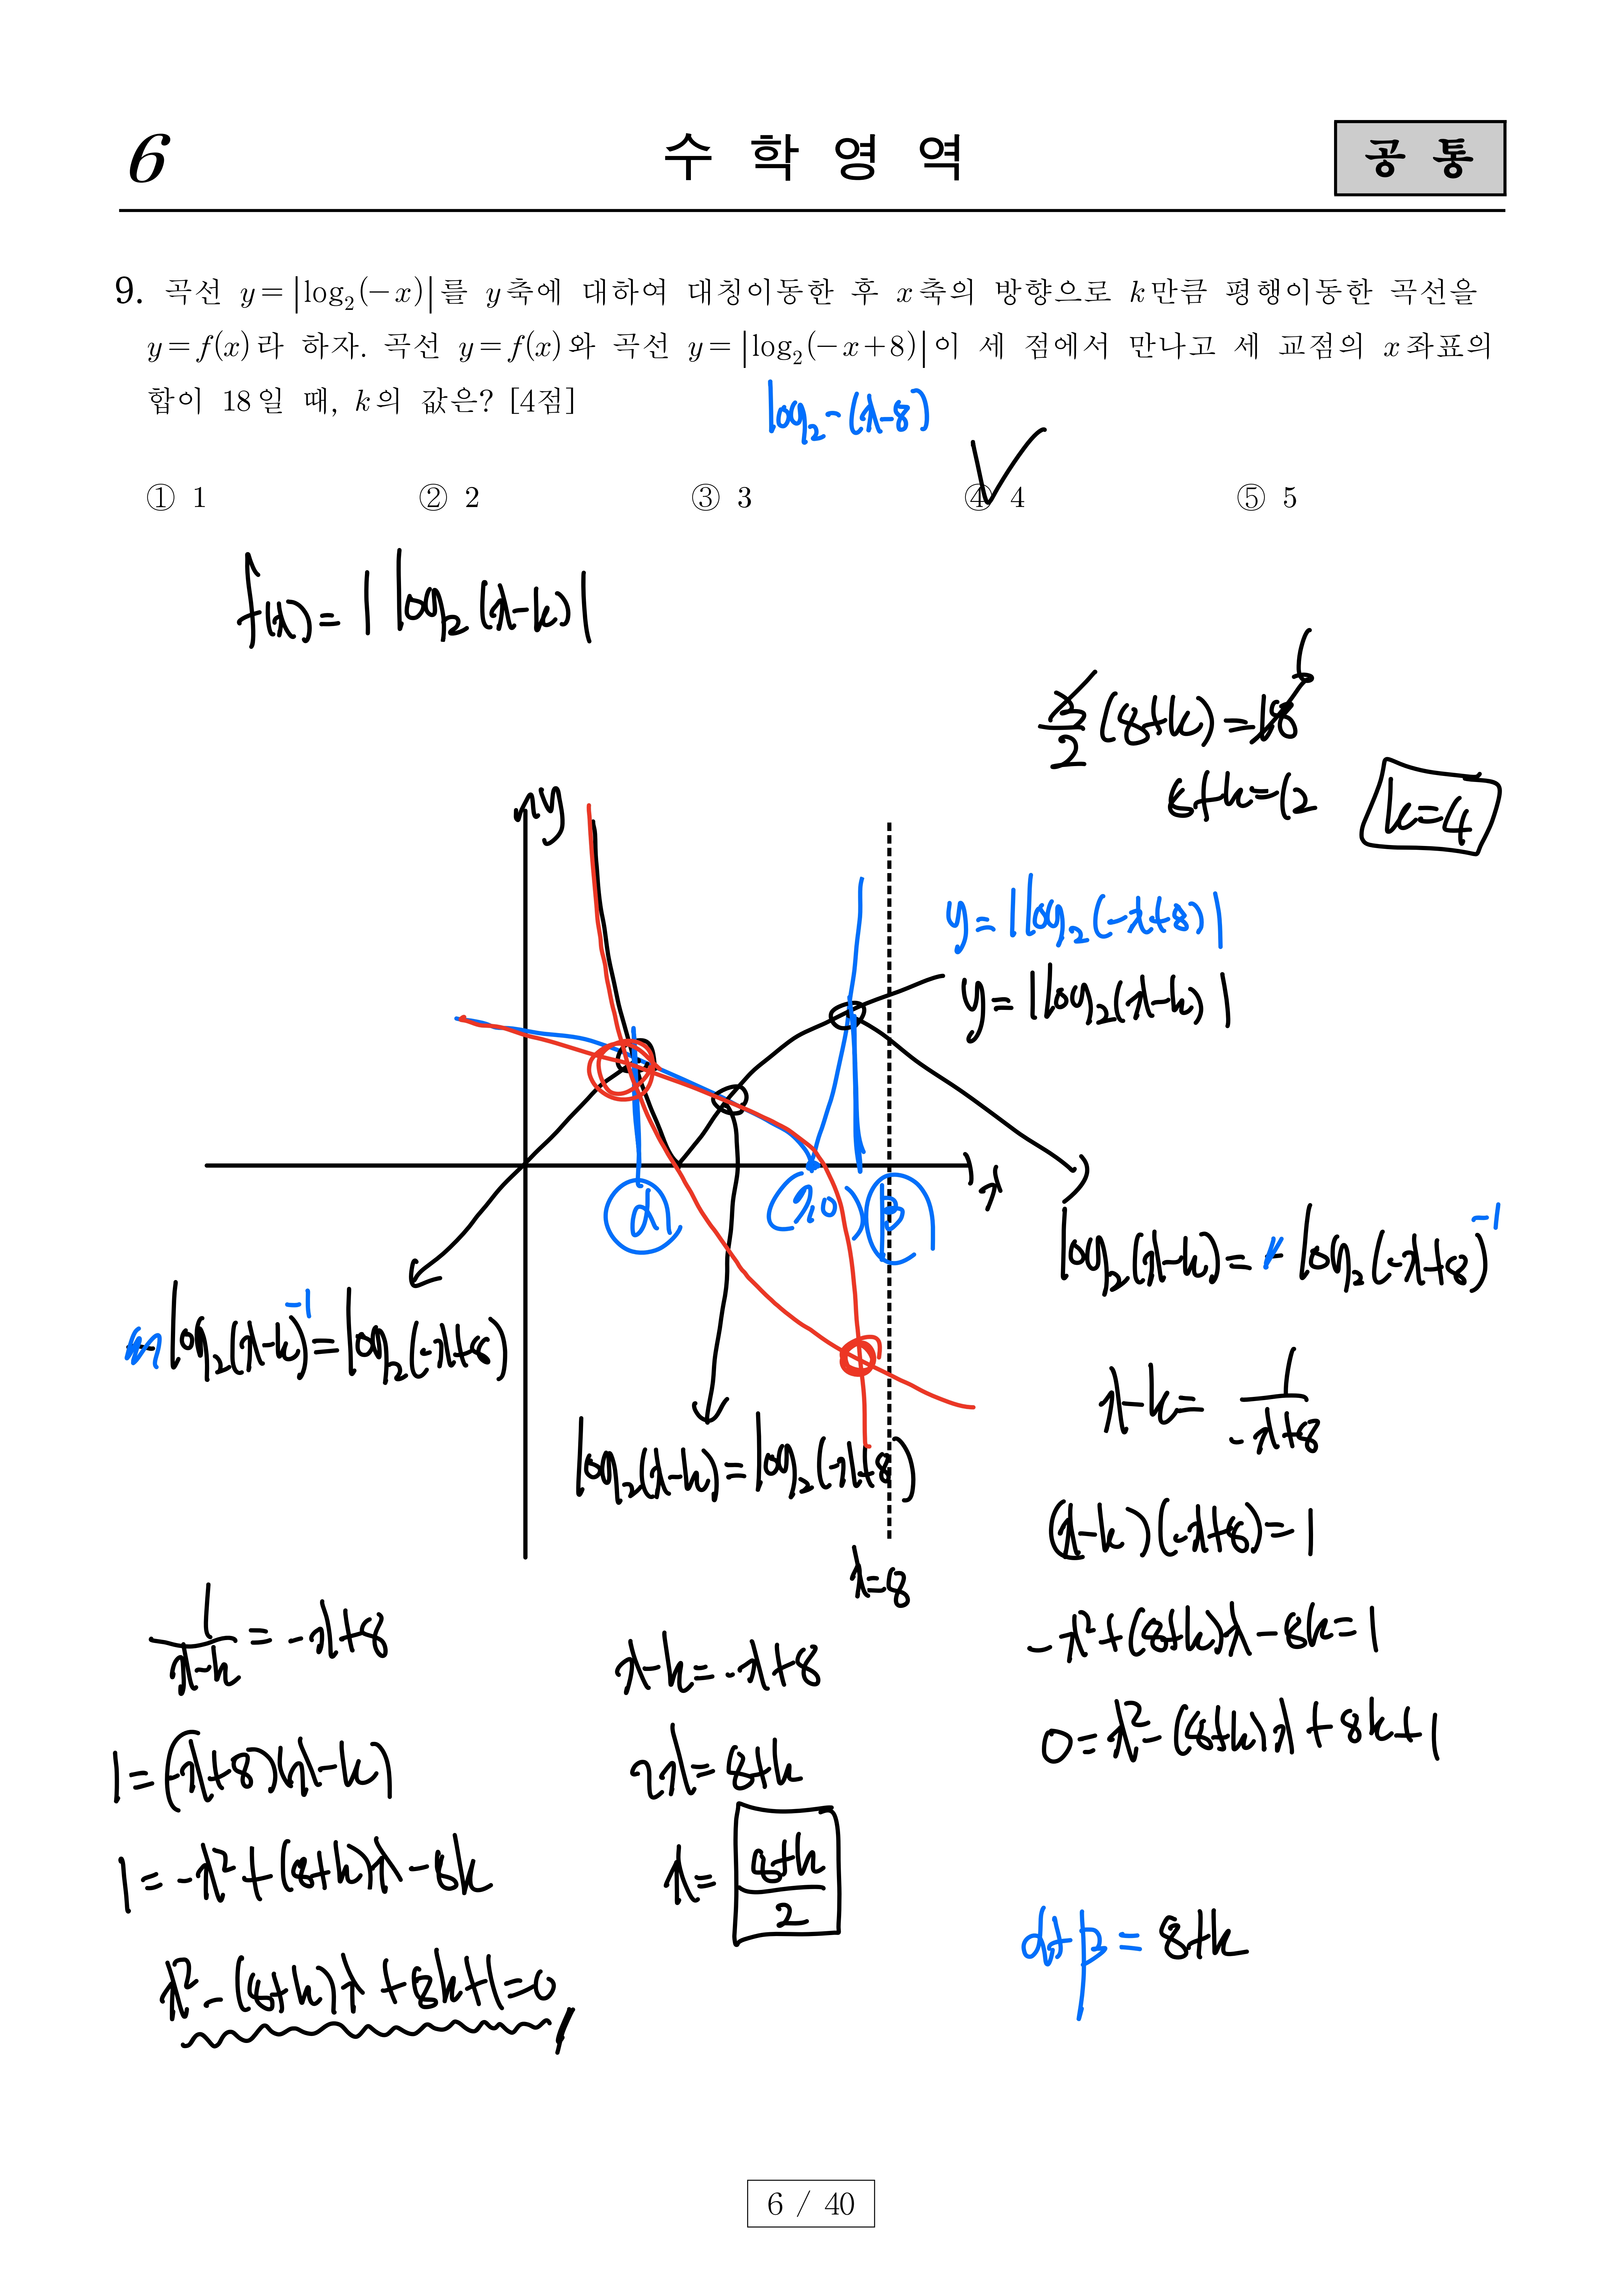 6
수 학 영 역
공 통
9. 곡선 y=|log₂(-x)|를 y축에 대하여 대칭이동한 후 x축의 방향으로 k만큼 평행이동한 곡선을
y=f(x)라 하자. 곡선 y=f(x)와 곡선 y=|log₂(-x+8)|이 세 점에서 만나고 세 교점의 x좌표의
합이 18일 때, k의 값은? [4점]
log₂-(x-8)
① 1 ② 2 ③ 3 ④ 4 ⑤ 5
f(x)=|log₂(x-k)|
3/2(8+k)=18
6
8+k=12
k=4
y
y=|log₂(-x+8)|
y=|log₂(x-k)|
x
α
(7,0)
β
log₂(x-k)=log₂(-x+8)⁻¹
log₂(x-k)⁻¹=log₂(-x+8)
x-k=1/(-x+8)
log₂(x-k)=log₂(-x+8)
(x-k)(-x+8)=1
x=8
1/(x-k)=-x+8
x-k=-x+8
-x²+(8+k)x-8k=1
1=(-x+8)(x-k)
2x=8+k
0=x²-(8+k)x+8k+1
1=-x²+(8+k)x-8k
x=(8+k)/2
α+β=8+k
x²-(8+k)x+8k+1=0
6 / 40